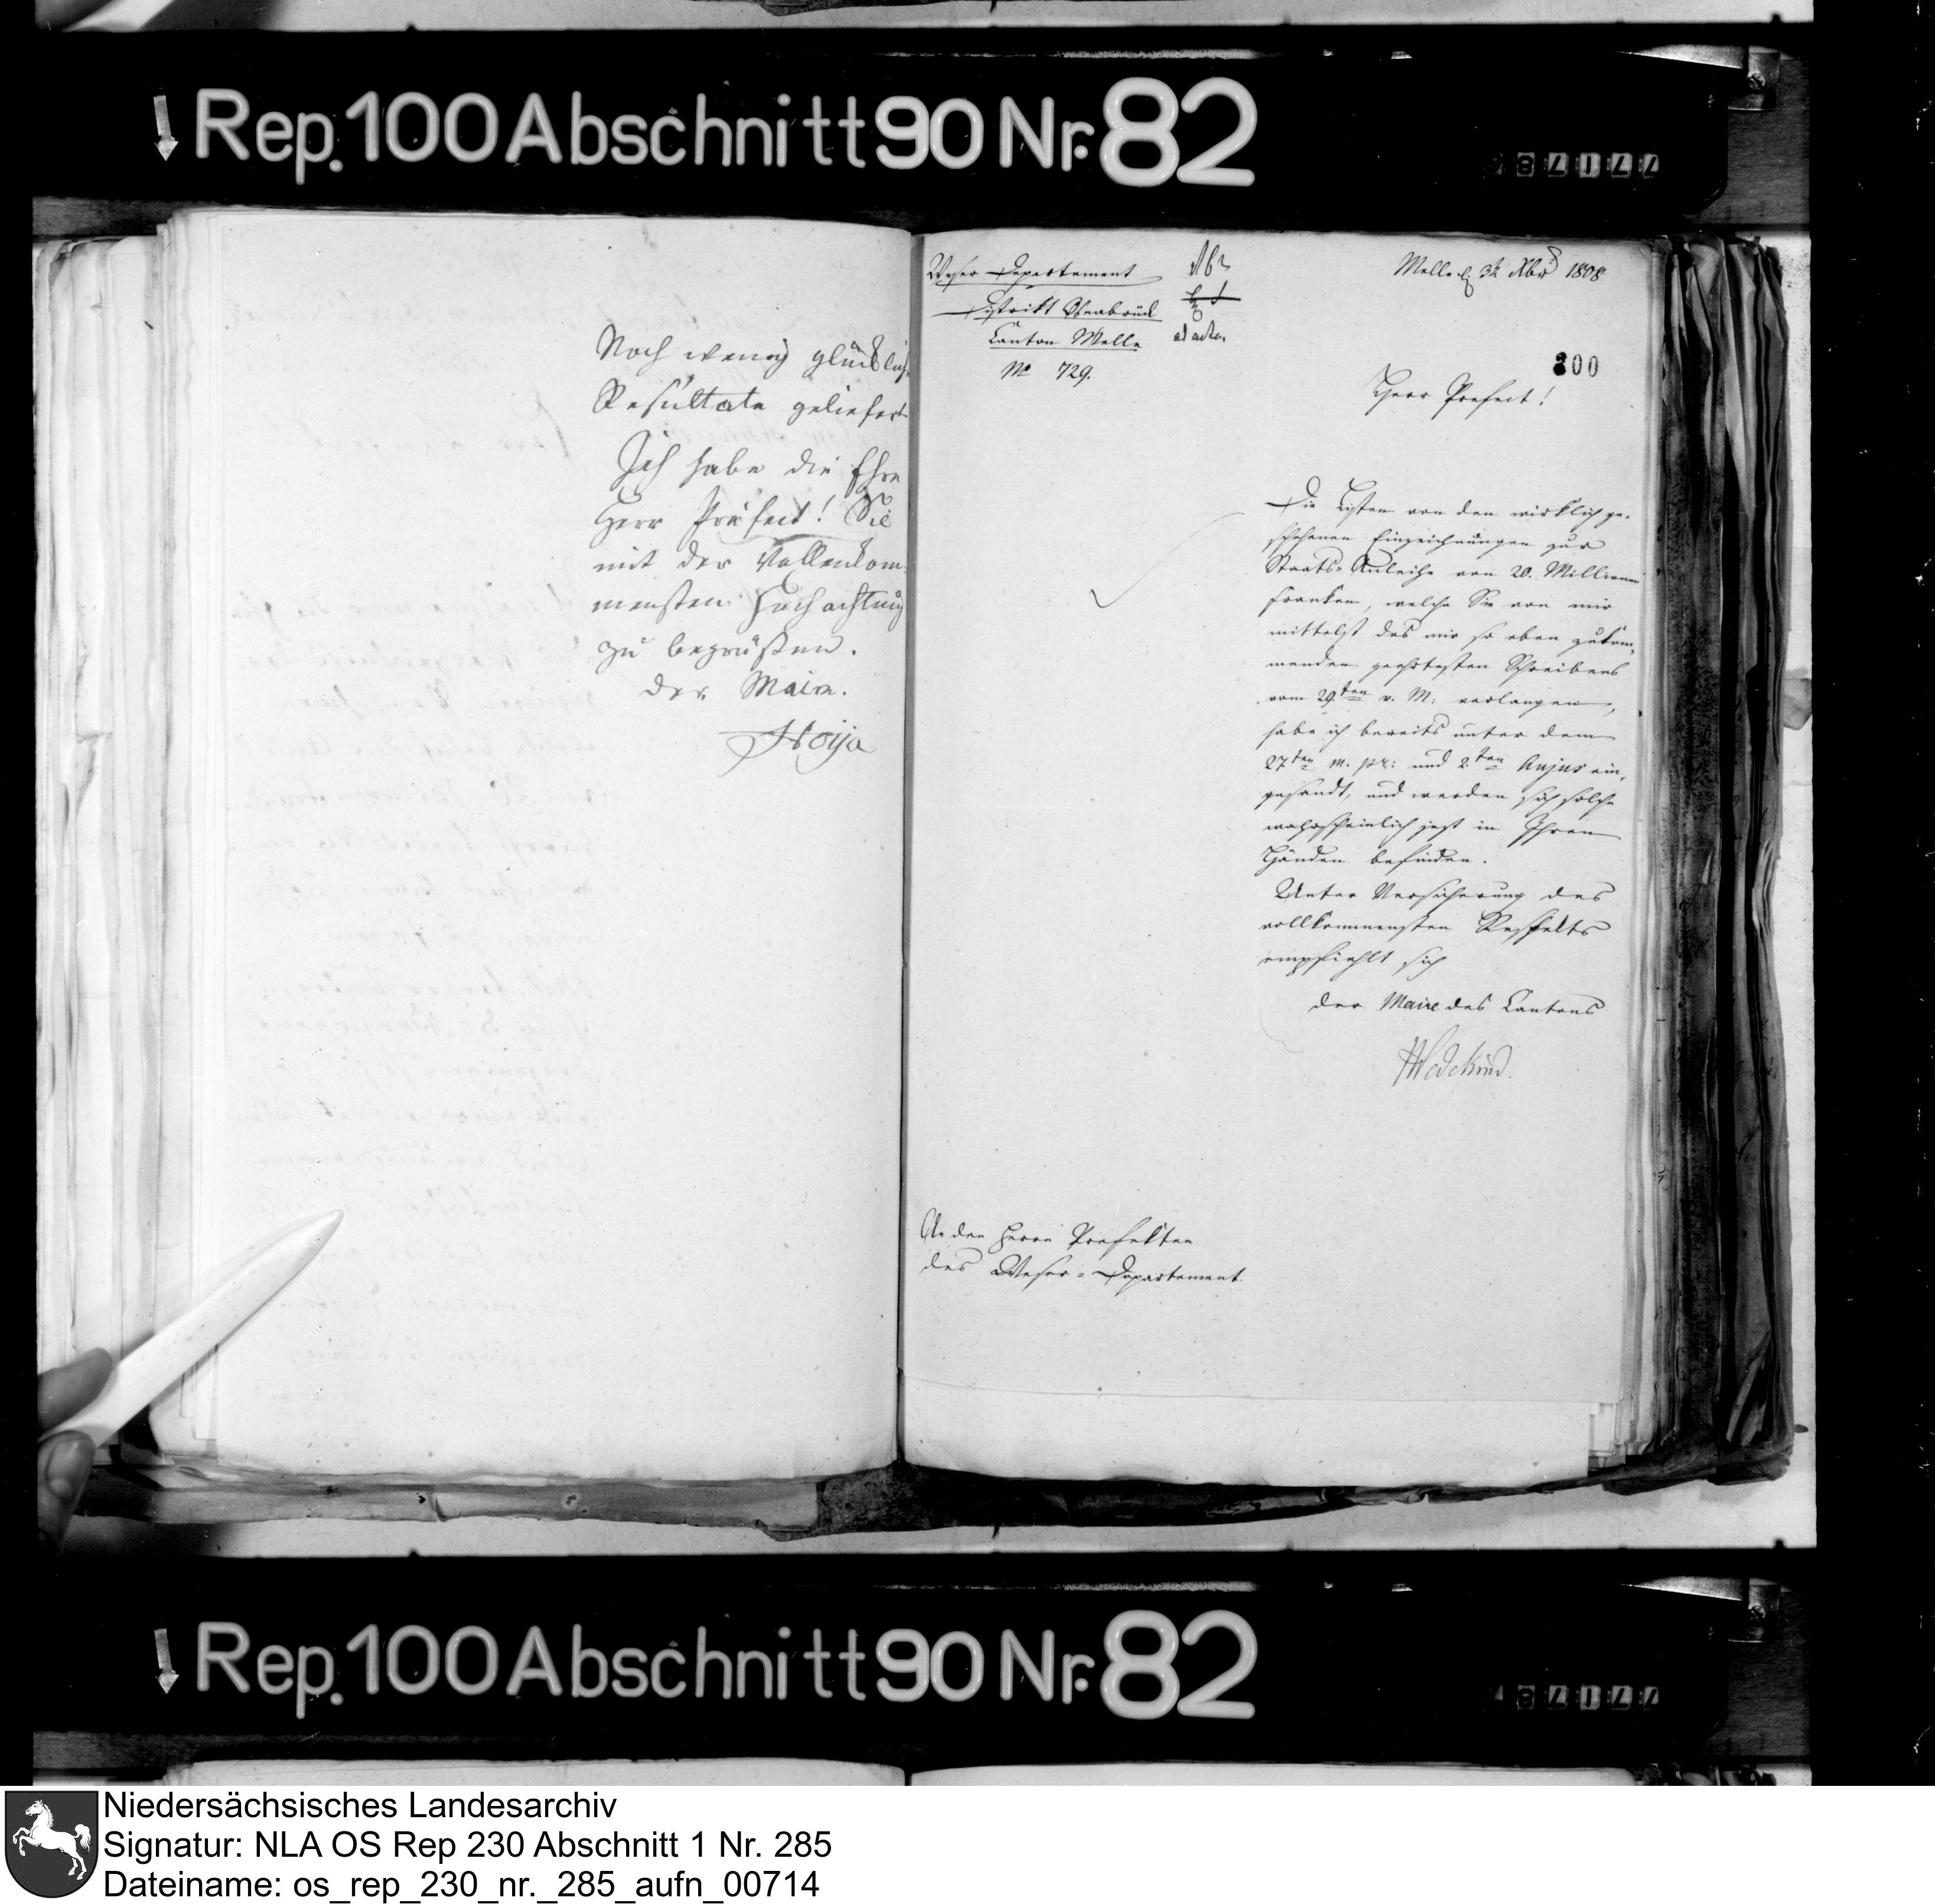 Rep. 100 Abschnitt 90 Nr. 82
Noch wenig glücklich
Resultate geliefert
Ich habe die Ehre
Herr Präfect! Sie
mit der Vollenkom
mensten Hochachtung
zu begrüßen.
der Maire.
Weser Departement
Distrikt Osnabrück
Canton Melle
No 729.
ad acta.
Melle 3t Xbr 1808
300
Herr Prefect!
Die Listen von den wirklich ge-
schehenen Einzeichnungen zur
Staats-Anleihe von 20. Millionen
Franken, welche Sie von mir
mittelst des mir so eben zukom-
menden geehrtesten Schreibens
vom 29.ten v. M: verlangen,
habe ich bereits unter dem
27.ten m. pr: und 2.ten hujus ein-
gesandt, und werden sich solche
wahrscheinlich jezt in Ihren
Händen befinden.
Unter Versicherung des
vollkommensten Respekts
empfiehlt sich
der Maire des Cantons
Wedekind.
An den Herrn Prefekten
des Weser-Departement.
Rep. 100 Abschnitt 90 Nr. 82
Niedersächsisches Landesarchiv
Signatur: NLA OS Rep 230 Abschnitt 1 Nr. 285
Dateiname: os_rep_230_nr._285_aufn_00714